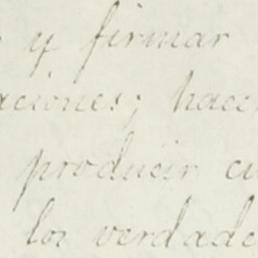 y firmar
aciones; hace
producir cu
los verdade